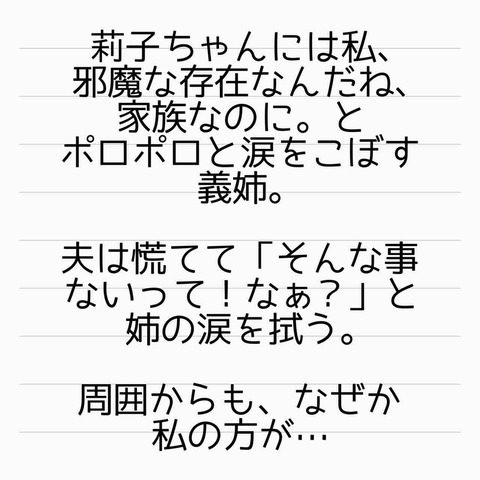 莉子ちゃんには私、
邪魔な存在なんだね、
家族なのに。と
ポロポロと涙をこぼす
義姉。
夫は慌てて「そんな事
ないって！なぁ？」と
姉の涙を拭う。
周囲からも、なぜか
私の方が…